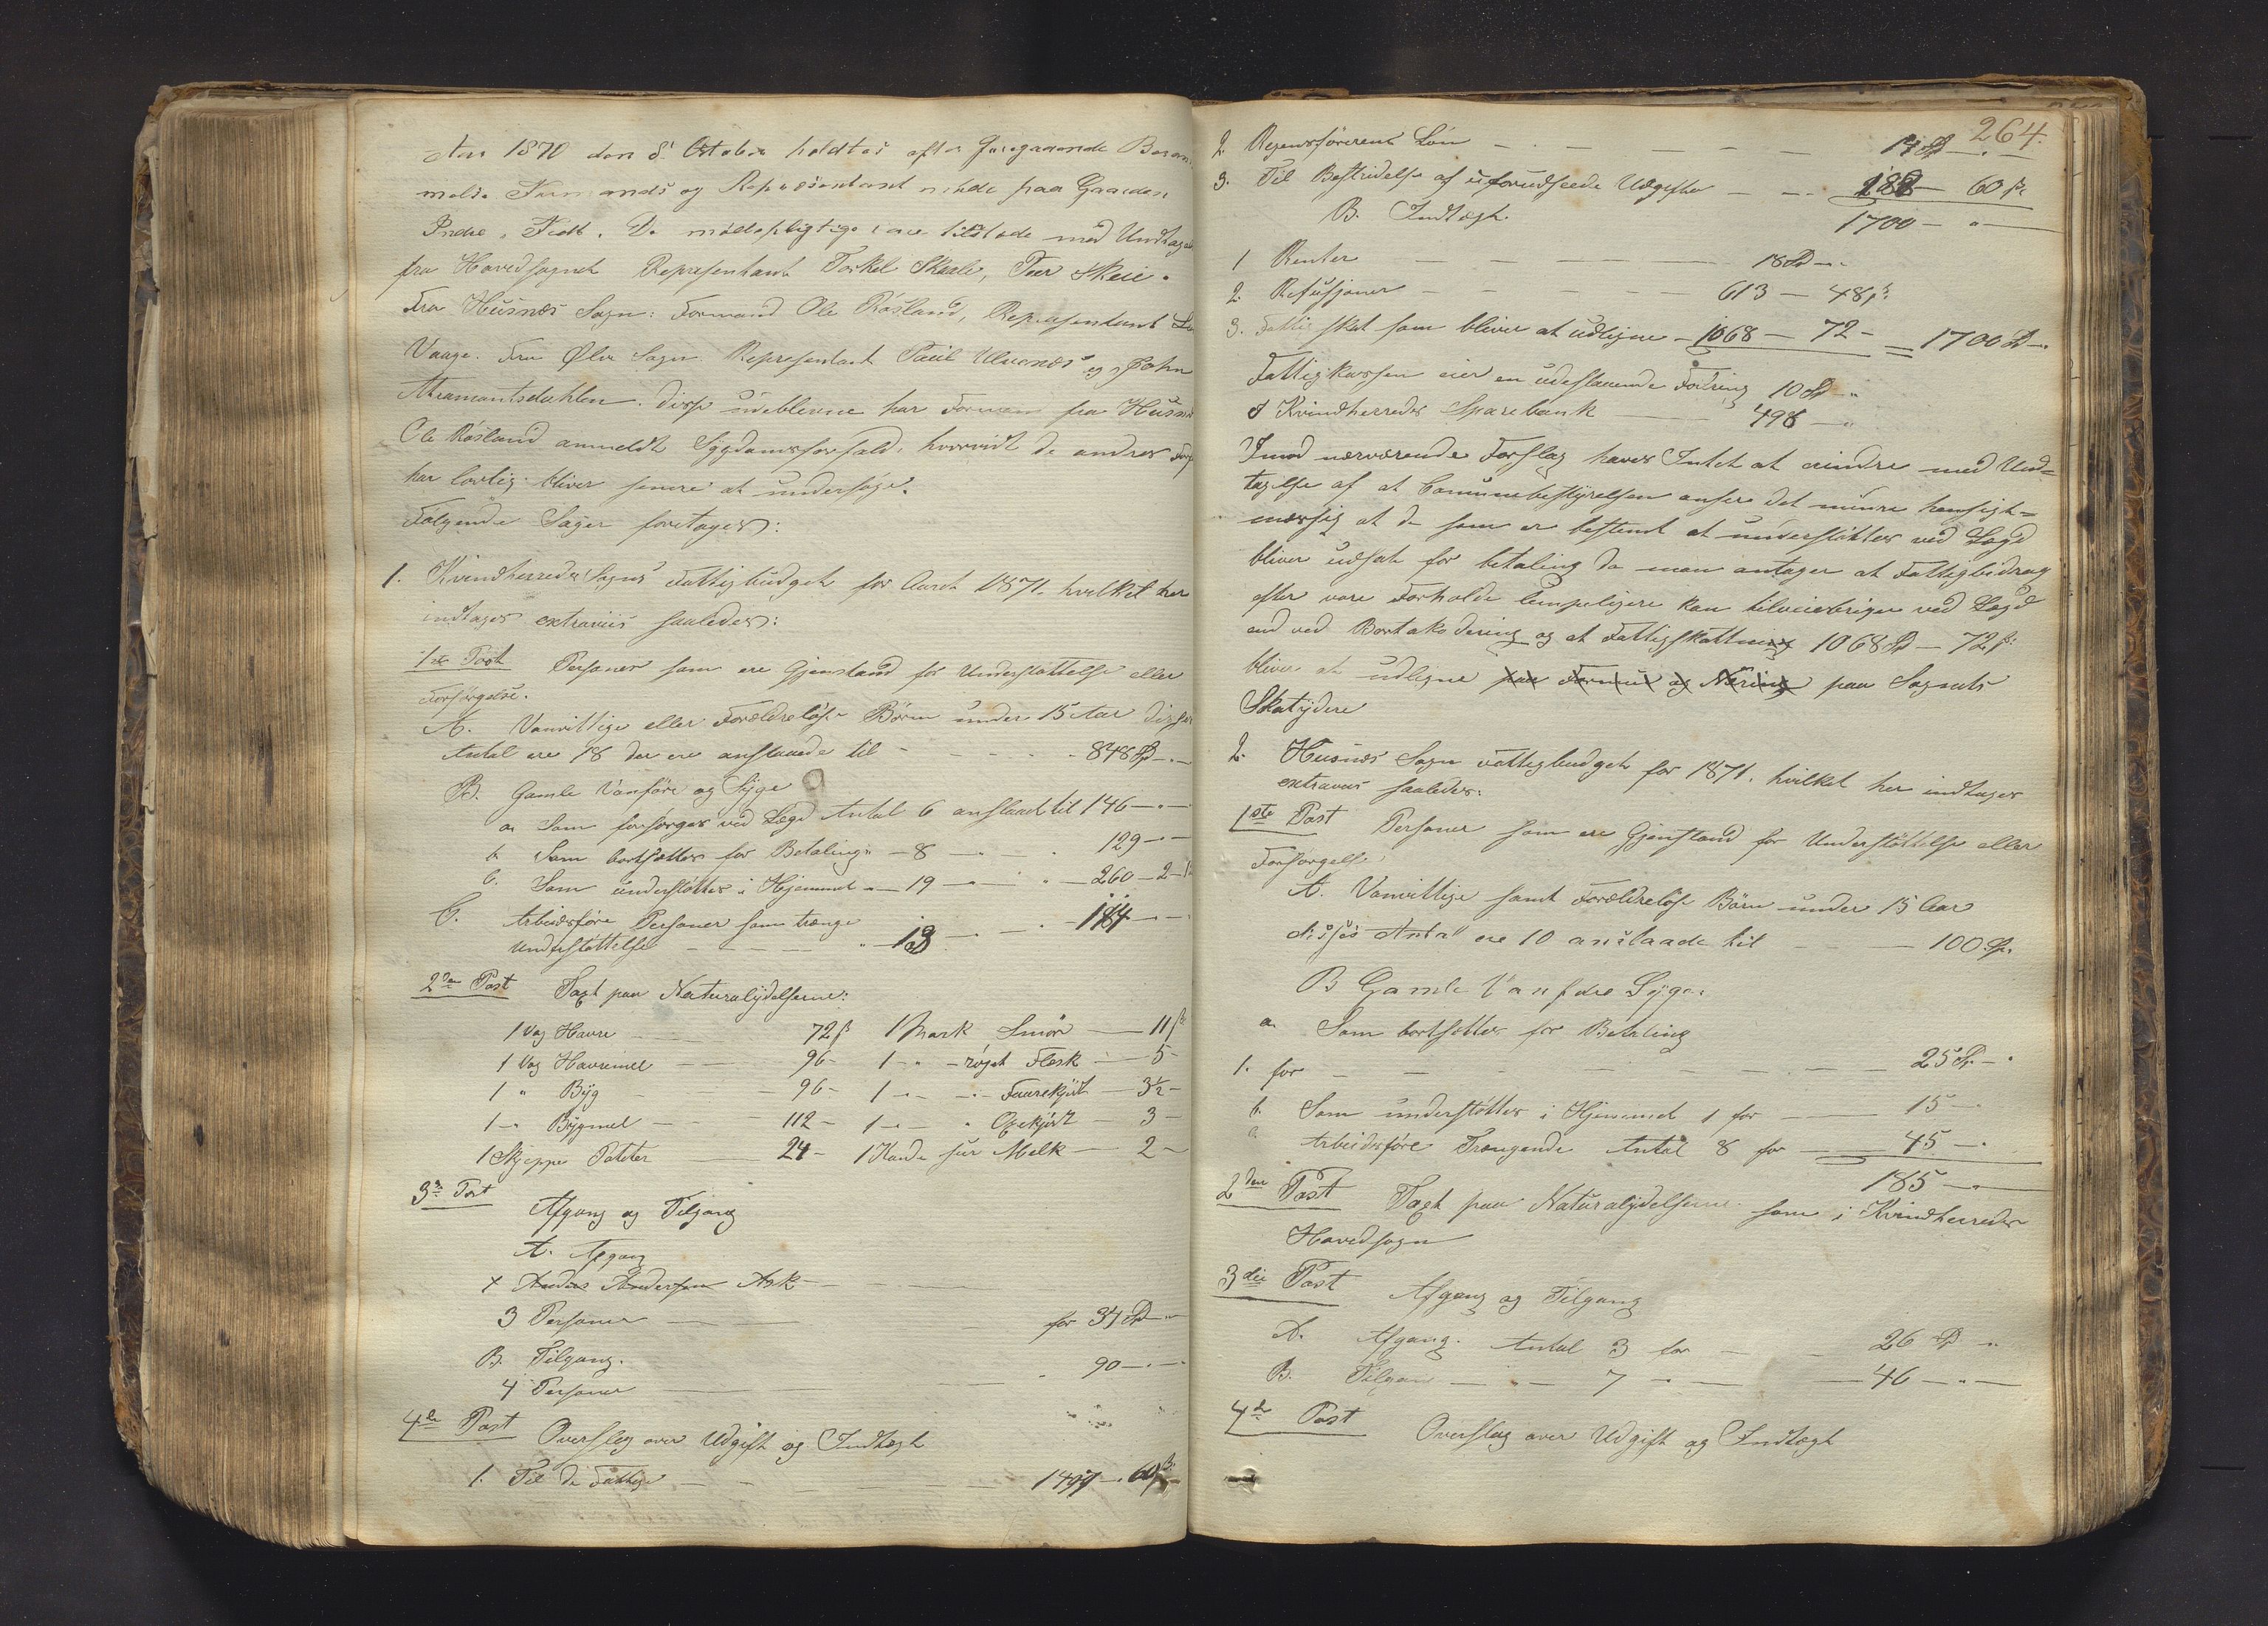 Aar 1870 den 8de October holdtes efter foregaaende Beram-
melse Formands og Repræsentant möde paa Gaarden
Indre Fedt. De mödepligtige vare tilstede med Undtag
fra Hovedsognet Repræsentant Torkel Skaale, Tver Skeie.
Fra Husnæs Sogn: Formand Ole Røsland, Repræsentant
Vaage. Fra Ølve Sogn Repræsentant Paul Ulvenæs og John
disse udeblevne har Formand fra Husnæs
Ole Røsland anmeldt Sygdomsforfald, hvorvidt de andres
har lovlig bliver senere at undersøge.
Følgende Sager foretages:
1. Kvindherreds Sogns Fattigbudget for Aaret 1871. hvilket her
indtages extraviis saaledes:
1ste Post Personer som ere Gjenstand for Understøttelse eller
Forsörgelse.
A. Vanvittige eller Forældrelöse Börn under 15 Aar disses
Antal ere 18 der ere anslaaede til - 848 Spd - " -
B. Gamle Vanföre og Syge
a. Som forsörges ved Lægd Antal 6 anslaaet til 146 - " -
b. Som bortsættes for Betaling " - 8 - " - 129 - " -
c. Som understöttes i Hjemmet " - 19 - " - 260 - 2 -
C. Arbeidsföre Personer som trænge
Understøttelse - " - 13 - " - 114 - " -
2den Post Taxt paa Naturalydelserne:
1 Vog Havre - 72 ß 1 Mark Smör - 11 ß
1 Vog Havremel - 96 - 1 - " - röget Flesk - 5 -
1 " Byg - 96 - 1 - " - " - Faarekjöt - 3½ -
1 - " Bygmel - 112 - 1 - " - " Oxekjöt - 3 -
1 Skjeppe Poteter - 24 - 1 Kande sur Melk - 2 -
3die Post
Afgang og Tilgang
A. Afgang
x Anders Andersen Ask -
3 Personer - for 34 Spd - "
B. Tilgang.
4 Personer - 90 - " -
4de Post Overslag over Udgift og Indtægt
1. Til de Fattige - 1497 - 60 ß.
264.
2. Regnsförerens Lön - 14 Spd - " -
3. Til Bestridelse af uforudseede Udgifter - 188 - 60 ß.
1700 - " -
B. Indtægt.
1 Renter - 18 Spd - "
2. Refusjoner - 613 - 48 ß.
3. Fattigskat som bliver at udligne - 1068 - 72 - = 1700 Spd - "
Fattigkassen eier en udestaaende Fordring 10 Spd "
I Kvindherreds Sparebank - 498 - "
Imod nærværende Forslag haves Intet at erindre med Und-
tagelse af at Comunebestyrelsen anser det mindre hensigt-
mæssig at de som er bestemt at understøttes ved Lægd
bliver udsat for betaling da man antager at Fattigbidrag
efter vore Forholde lempeligere kan tilveiebringes ved Lægd
end ved Bortakordering og at Fattigskatten 1068 Spd - 72 ß.
bliver at udligne paa Formue og Næring paa Sognets
Skatydere
2. Husnæs Sogn Fattigbudget for 1871. hvilket her indtages
extraviis saaledes:
1ste Post Personer som ere Gjenstand for Understöttelse eller
Forsorgelse
A. Vanvittige samt Forældrelöse Börn under 15 Aar
disses Antal ere 10 anslaaede til - 100 Sp.
B Gamle Vanföre Syge.
a. Som bortsættes for Betaling
1. for - 25 Sp. - "
b. Som understöttes i Hjemmet 1 for - 15 - "
c. Arbeidsföre Trængende Antal 8 for - 45 - "
185 - "
2den Post Taxt paa Naturalydelserne som i Kvindherreds
Hovedsogn
3die Post Afgang og Tilgang
A. Afgang. Antal 3 for - 26 Spd "
B. Tilgang - " - 7 - " - 46 - " -
4de Post Overslag over Udgift og Indtægt